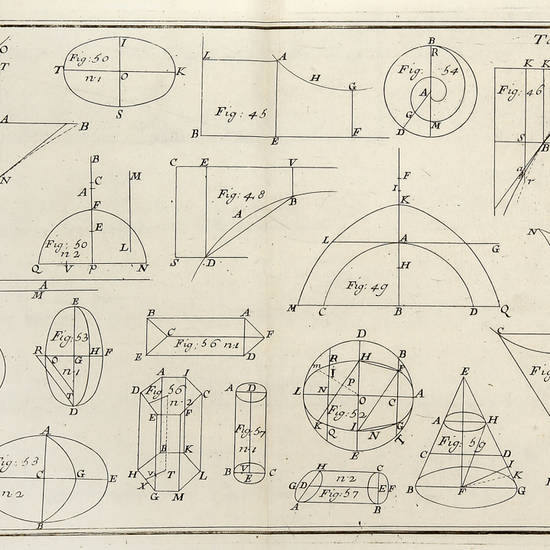 O
T
A
B
N
I
Fig: 50
T
n·1
O
K
S
L
A
H
G
Fig: 45
B
E
F
B
R
Fig:
54
A
G
D
M
T
K
K
Fig: 46
S
B
a
r
B
C
A
F
E
M
L
Fig: 50
n·2
Q
V
P
N
C
E
V
Fig: 48
B
A
S
D
F
I
K
L
A
G
H
Fig: 49
M
C
B
D
Q
A
M
N
C
E
Fig: 53
R
O
G
H
F
n·1
T
D
B
A
C
F
Fig: 56 n·1
E
D
A
I
Fig: 56
D
n·2
C
E
F
B
K
H
V
T
L
X
G
M
A
D
Fig: 57
n·1
B
V
C
E
D
m
R
H
B
I
F
P
L
N
O
C
A
Fig: 52
K
Q
I
N
G
T
E
H
n·2
C
G
D
E
Fig: 57
A
B
E
A
H
Fig: 59
C
D
I
K
B
F
G
A
Fig: 53
n·2
C
G
E
B